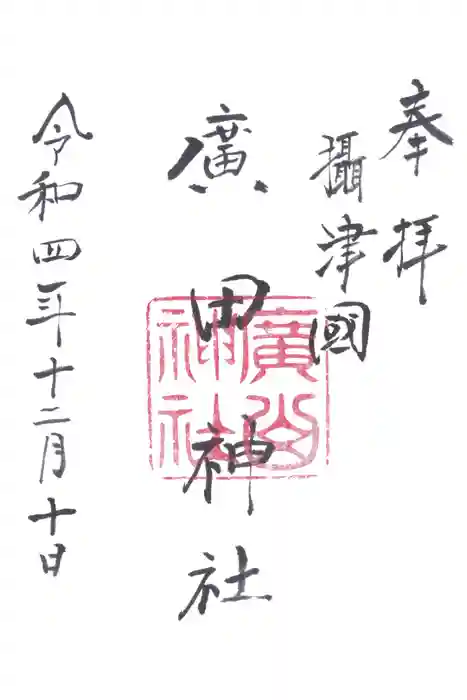 奉拝
攝津國
廣田神社
令和四年十二月十日